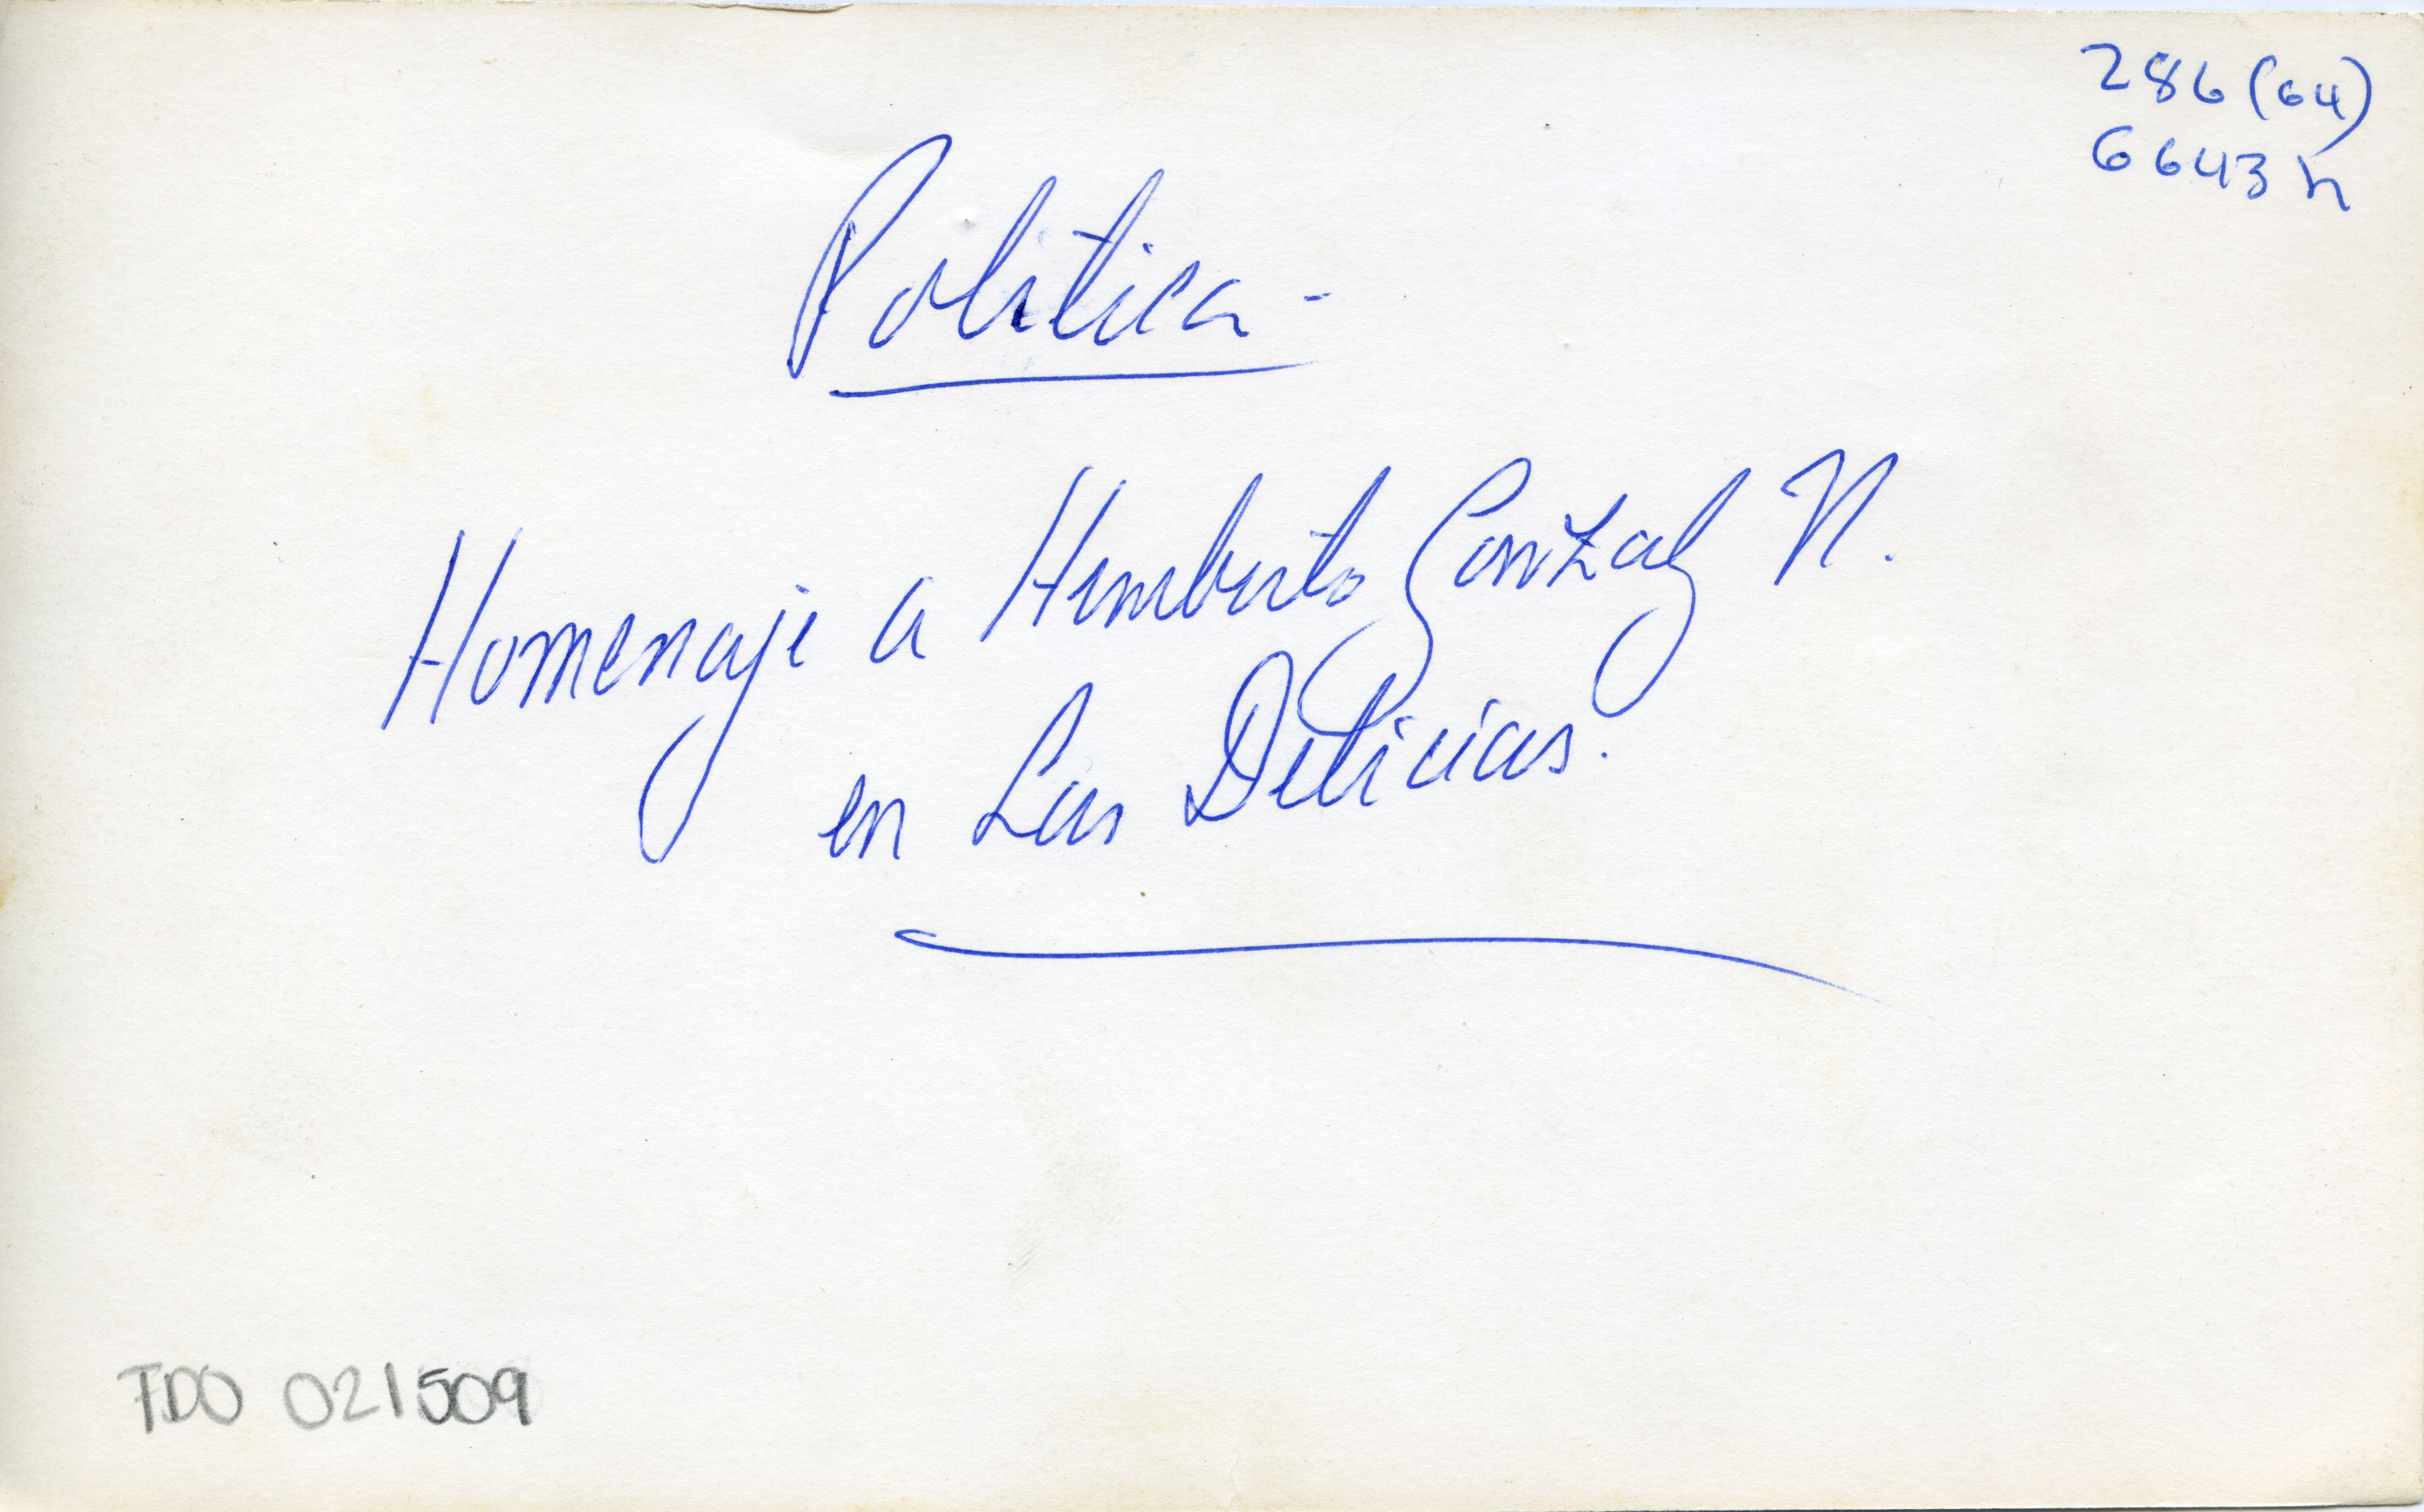 286 (64)
6643 h
Politica -
Homenaje a Humberto González N.
en Las Delicias.
TDO 021509